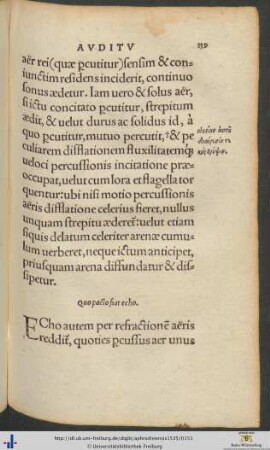 AVDITV
aër rei (quæ pcutitur) sensim & con-
iunctim residens inciderit, continuo
sonus ædetur. Iam uero & solus aër,
si ictu concitato pcutitur, strepitum
ædit, & uelut durus ac solidus id, à
quo pcutitur, mutuo percutit, & pe
culiarem difflationem fluxilitatemq́
ueloci percussionis incitatione præ-
occupat, uelut cum lora et flagella tor
quentur: ubi nisi motio percussionis
aëris difflatione celerius fieret, nullus
unquam strepitu æderet: uelut etiam
si quis delatum celeriter arenæ cumu-
lum uerberet, neque ictum anticipet,
priusquam arena diffundatur & dif-
sipetur.
Quo pacto fiat echo.
Echo autem per refractionē aëris
reddit, quoties pcussus aer unus
http://dl.ub.uni-freiburg.de/diglit/aphrodisiensis1535/0153
© Universitätsbibliothek Freiburg